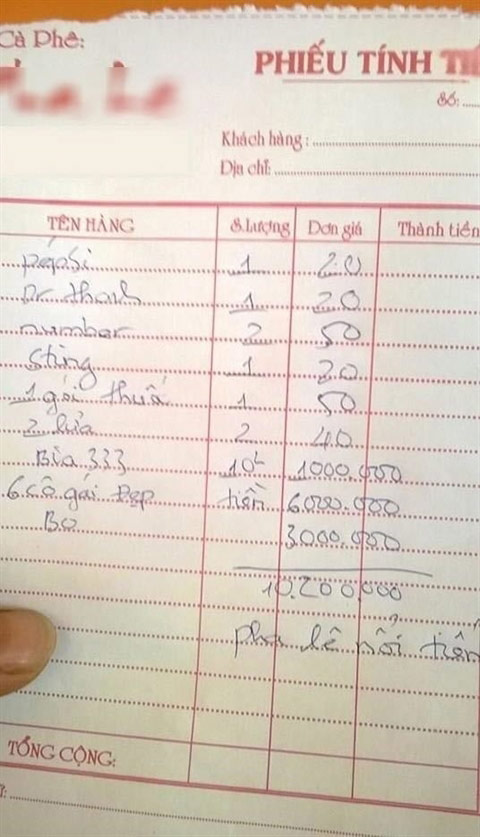 Cà Phê:
PHIẾU TÍNH
Số:
Khách hàng:
Địa chỉ:
TÊN HÀNG S.Lượng Đơn giá Thành tiền
pepsi 1 20
Dr thanh 1 20
number 2 50
Sting 1 20
1 gói thuố 1 50
2 lửa 2 40
Bia 333 10L 1000.000
6 cô gái Đẹp tiền 6.000.000
Bo 3000.000
10.200.000
pha lê nổi tiến
TỔNG CỘNG: